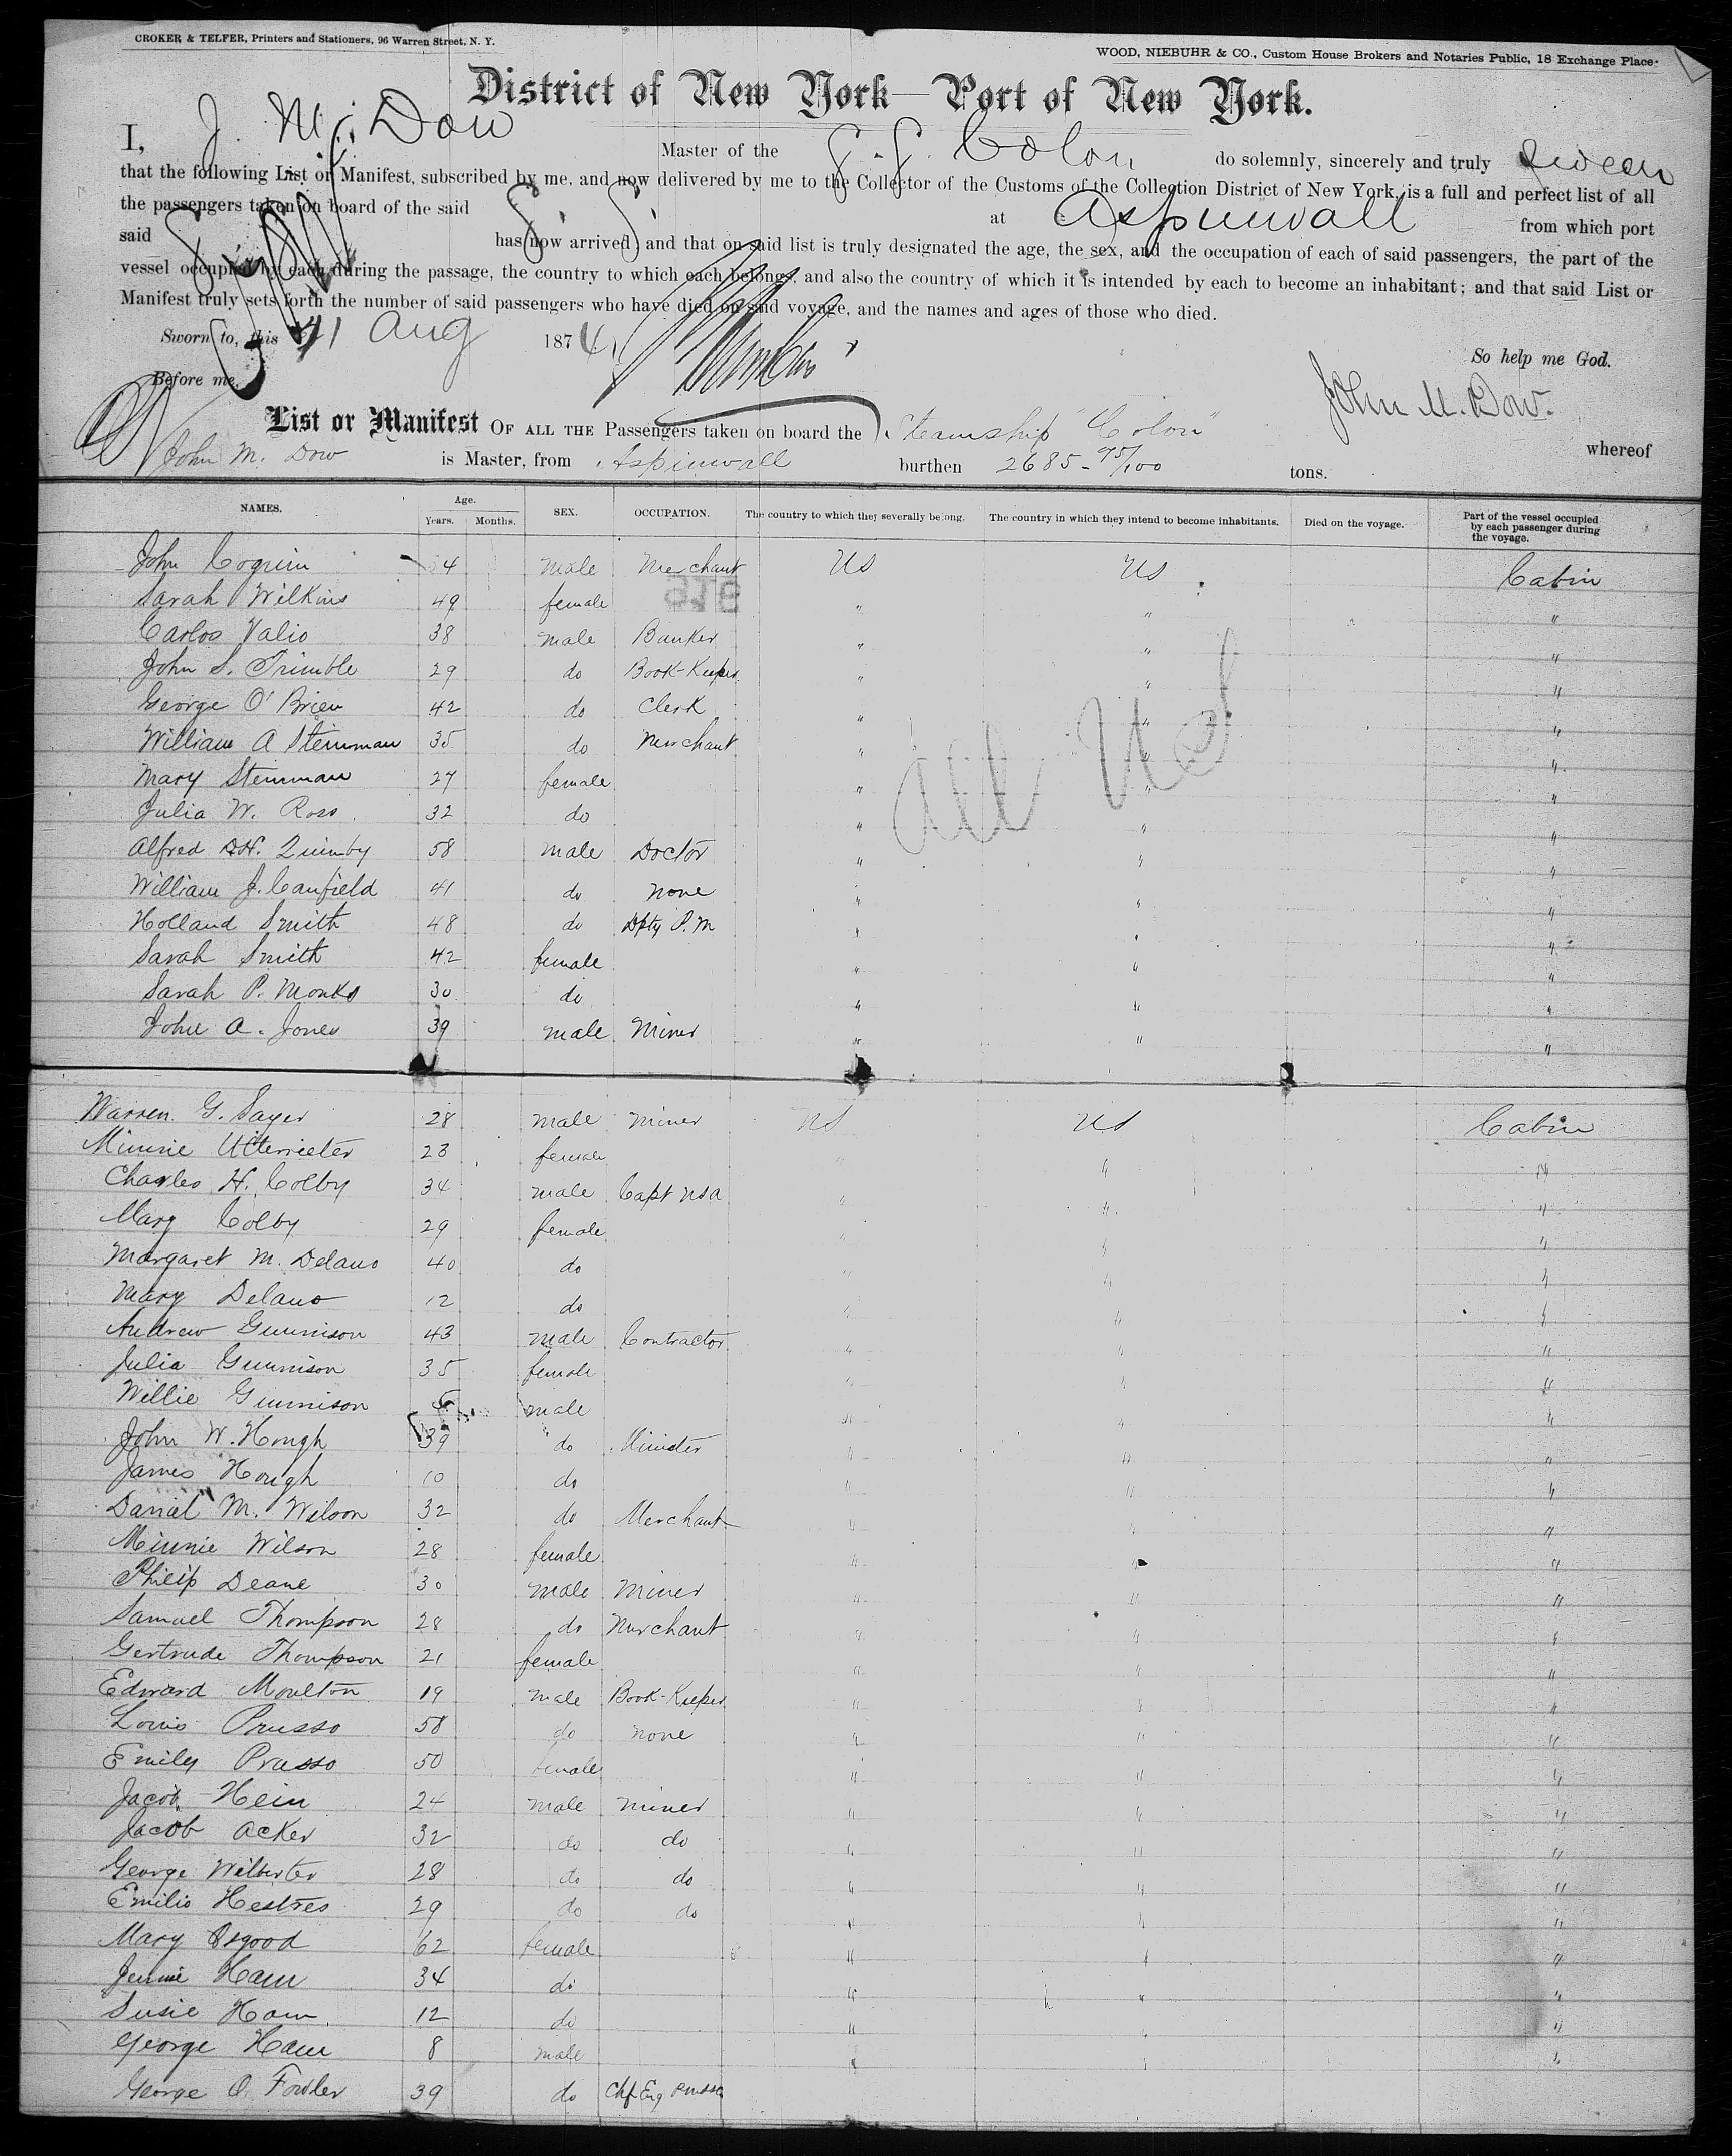 CROKER & TELFER, Printers and Stationers, 96 Warren Street, N. Y.
WOOD, NIEBUHR & CO., Custom House Brokers and Notaries Public, 18 Exchange Place.
District of New York—Port of New York.
I, J. M. Dow Master of the S.S. Colon do solemnly, sincerely and truly swear
that the following List or Manifest, subscribed by me, and now delivered by me to the Collector of the Customs of the Collection District of New York, is a full and perfect list of all
the passengers taken on board of the said S. S. at Aspinwall from which port
said has now arrived; and that on said list is truly designated the age, the sex, and the occupation of each of said passengers, the part of the
vessel occupied by each during the passage, the country to which each belongs, and also the country of which it is intended by each to become an inhabitant; and that said List or
Manifest truly sets forth the number of said passengers who have died on said voyage, and the names and ages of those who died.
Sworn to, this Aug 1874
So help me God.
Before me,
John M. Dow.
List or Manifest OF ALL THE Passengers taken on board the Steamship "Colon" whereof
John M. Dow is Master, from Aspinwall burthen 2685-95/100 tons.
NAMES. Age. Years. Months. SEX. OCCUPATION. The country to which they severally belong. The country in which they intend to become inhabitants. Died on the voyage. Part of the vessel occupied by each passenger during the voyage.
John 4 male Merchant US US Cabin
Sarah Wilkins 49 female " " "
Carlos Valio 38 male Banker " " "
John S. Trimble 29 do Book-Keeper " " "
George O'Brien 42 do Clerk " " "
William A Steinman 35 do Merchant " " "
Mary Steinman 27 female " " "
Julia W. Ross 32 do " " "
All US
Alfred H. Quimby 58 male Doctor " " "
William J. Canfield 41 do none " " "
Holland Smith 48 do Dpty P. M " " "
Sarah Smith 42 female " " "
Sarah P. Monks 30 do " " "
John A. Jones 39 male Miner " " "
Warren G. Sayer 28 male Miner US US Cabin
Minnie 23 female " " "
Charles H. Colby 34 male Capt USA " " "
Mary Colby 29 female " " "
Margaret M. Delano 40 do " " "
Mary Delano 12 do " " "
Andrew Gunnison 43 male Contractor " " "
Julia Gunnison 35 female " " "
Willie Gunnison male " " "
John W. Hough 39 do Minister " " "
James Hough 10 do " " "
Daniel M. Wilson 32 do Merchant " " "
Minnie Wilson 28 female " " "
Philip Deane 30 male Miner " " "
Samuel Thompson 28 do Merchant " " "
Gertrude Thompson 21 female " " "
Edward Moulton 19 male Book-Keeper " " "
Louis Prusso 58 do none " " "
Emily Prusso 50 female " " "
Jacob Hein 24 male miner " " "
Jacob Acker 32 do do " " "
George 28 do do " " "
Emilio Hestres 29 do do " " "
Mary Osgood 62 female " " "
Jennie Ham 34 do " " "
Susie Ham 12 do " " "
George Ham 8 male " " "
George O. Fowler 39 do Chf Eng